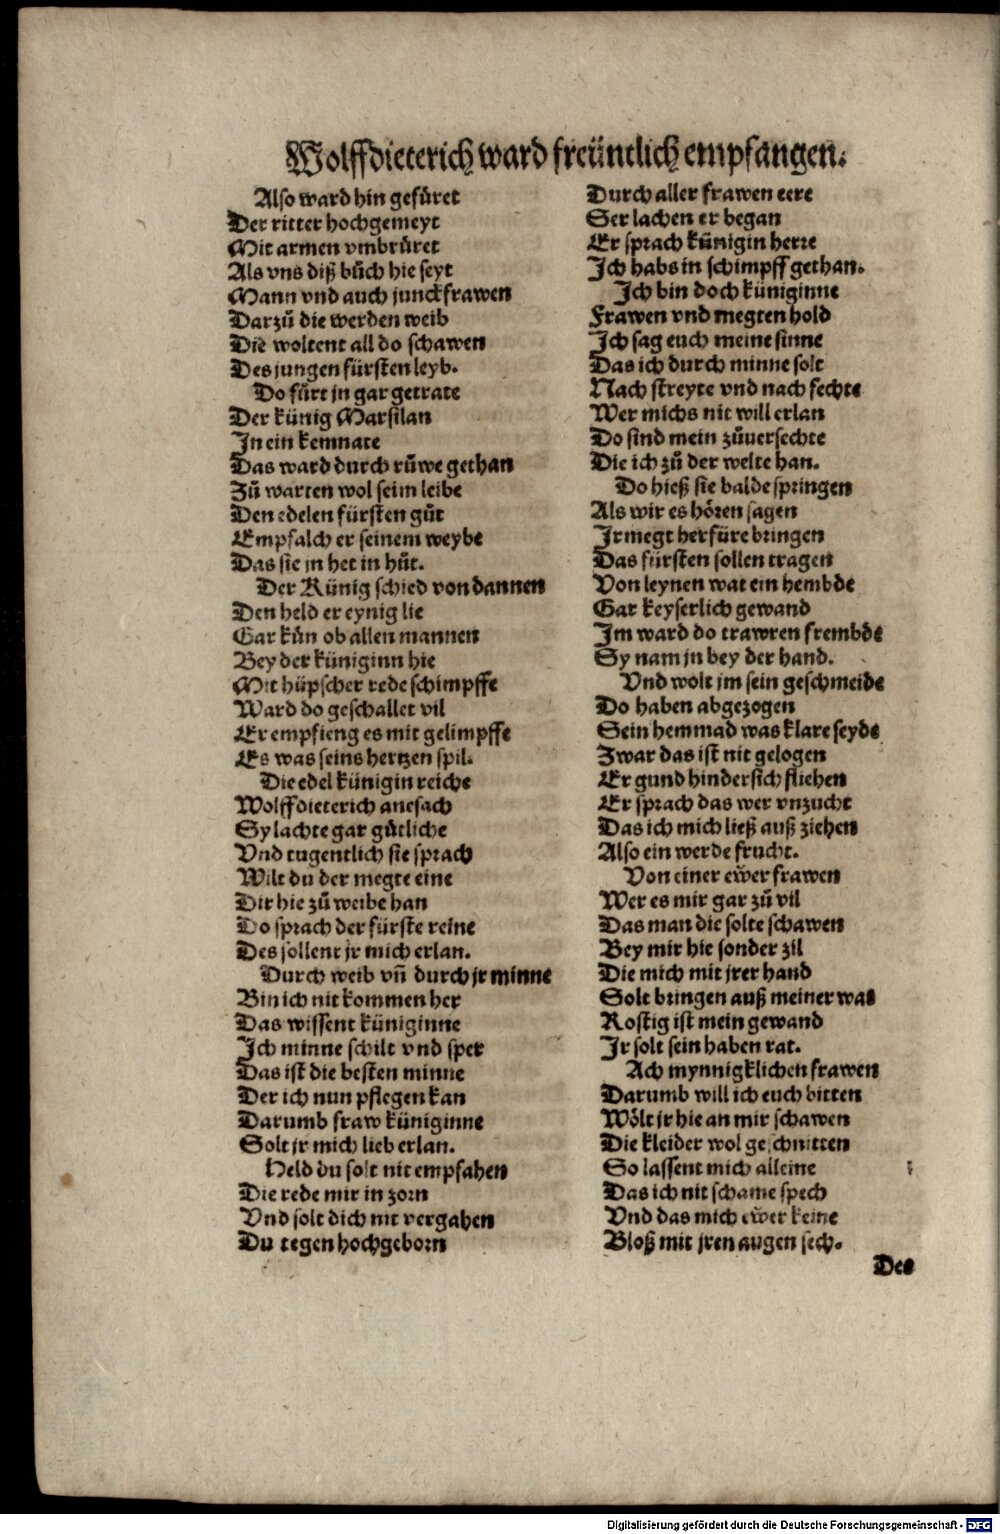 Wolffdieterich ward freüntlich empfangen.
Also ward hin gefüret
Der ritter hochgemeyt
Mit armen vmbrüret
Als vns diß bůch hie seyt
Mann vnd auch junckfrawen
Darzů die werden weib
Die woltent all do schawen
Des jungen fürsten leyb.
Do fůrt jn gar getrate
Der künig Marsilan
In ein kemnate
Das ward durch růwe gethan
Zů warten wol seim leibe
Den edelen fürsten gůt
Empfalch er seinem weybe
Das sie jn het in hůt.
Der Künig schied von dannen
Den held er eynig lie
Gar kün ob allen mannen
Bey der küniginn hie
Mit hüpscher rede schimpffe
Ward do geschallet vil
Er empfieng es mit gelimpffe
Es was seins hertzen spil.
Die edel künigin reiche
Wolffdieterich anesach
Sy lachte gar gütliche
Vnd tugentlich sie sprach
Wilt du der megte eine
Dir hie zů weibe han
Do sprach der fürste reine
Des sollent jr mich erlan.
Durch weib vñ durch jr minne
Bin ich nit kommen her
Das wissent küniginne
Ich minne schilt vnd sper
Das ist die besten minne
Der ich nun pflegen kan
Darumb fraw küniginne
Solt jr mich lieb erlan.
Held du solt nit empfahen
Die rede mir in zorn
Vnd solt dich nit vergahen
Du tegen hochgeborn
Durch aller frawen eere
Ser lachen er began
Er sprach künigin herre
Ich habs in schimpff gethan.
Ich bin doch küniginne
Frawen vnd megten hold
Ich sag euch meine sinne
Das ich durch minne solt
Nach streyte vnd nach fechte
Wer michs nit will erlan
Do sind mein zůuersechte
Die ich zů der welte han.
Do hieß sie balde springen
Als wir es hören sagen
Ir megt herfüre bringen
Das fürsten sollen tragen
Von leynen wat ein hembde
Gar keyserlich gewand
Im ward do trawren frembde
Sy nam jn bey der hand.
Vnd wolt jm sein geschmeide
Do haben abgezogen
Sein hemmad was klare seyde
Zwar das ist nit gelogen
Er gund hindersich fliehen
Er sprach das wer vnzucht
Das ich mich ließ auß ziehen
Also ein werde frucht.
Von einer ewer frawen
Wer es mir gar zů vil
Das man die solte schawen
Bey mir hie sonder zil
Die mich mit jrer hand
Solt bringen auß meiner was
Rostig ist mein gewand
Ir solt sein haben rat.
Ach mynnigklichen frawen
Darumb will ich euch bitten
Wölt jr hie an mir schawen
Die kleider wol geschnitten
So lassent mich alleine
Das ich nit schame spech
Vnd das mich ewer keine
Bloß mit jren augen sech.
Des
Digitalisierung gefördert durch die Deutsche Forschungsgemeinschaft - DFG